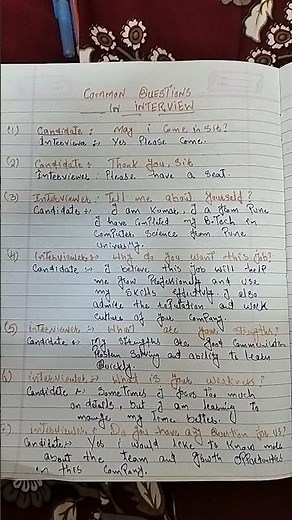 COMMON QUESTIONS
IN INTERVIEW
(1) Candidate : May i come in Sir?
Interviewer :- Yes Please Come.
(2) Candidate : Thank you, Sir
Interviewer : Please have a Seat.
(3) Interviewer : Tell me about Yourself?
Candidate :- I am Kumar, I a from Pune
I have Completed my B-Tech in
Computer Science from Pune
University.
(4) Interviewer :- Why do you want this Job?
Candidate :- I believe this Job will help
me grow Professionally and use
my Skills effectively. I also
admire the reputation and work
culture of your Company.
(5) interviewer :- What are your Strengths?
Candidate :- My Strengths are Good Communication
Problem Solving and ability to learn
Quickly.
(6) interviewer :- What is your weakness?
Candidate :- Sometimes I focus too much
on details, but I am learning to
manage my time better.
(7) interviewer :- Do you have any Question for us?
Candidate :- Yes i would like to know more
about the team and growth opportunities
in this Company.